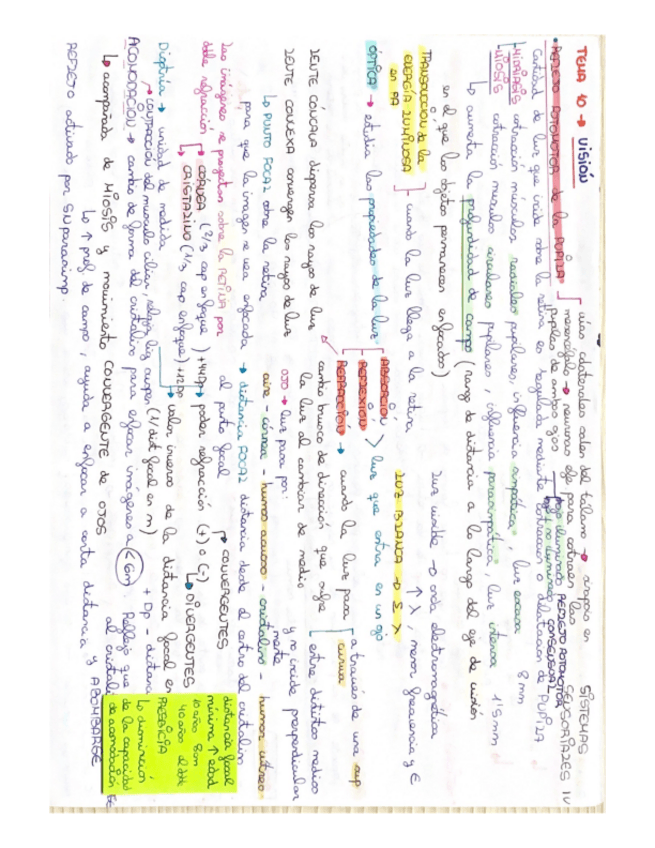 SISTEMAS
SENSORIALES IV
TEMA 10 → VISIÓN
vías colaterales salen del tálamo → sinapsis en
• REFLEJO FOTOMOTOR de la PUPILA mesencéfalo → neuronas efe para contraen las
pupilas de ambos ojos ojo iluminado REFLEJO FOTOMOTOR
ojo no iluminado CONSENSUAL
Cantidad de luz que incide sobre la retina es regulada mediante contracción o dilatación de PUPILA
MIDRIASIS contracción músculos radiales pupilares, influencia simpática, luz escasa 8mm
MIOSIS contracción músculos circulares pupilares, influencia parasimpática, luz intensa 1'5mm
↳ aumenta la profundidad de campo (rango de distancia a lo largo del eje de visión
en el que los objetos permanecen enfocados)
TRANSDUCCIÓN de la
ENERGÍA LUMINOSA - cuando la luz llega a la retina
en PA
Luz visible → onda electromagnética
↑ λ, menor frecuencia y E
LUZ BLANCA → Σ λ
ÓPTICA → estudia las propiedades de la luz
ABSORCIÓN
REFLEXIÓN > luz que entra en un ojo
REFRACCIÓN → cuando la luz pasa
a través de una sup curva
entre distintos medios
y no incide perpendicularmente
cambio brusco de dirección que sufre
la luz al cambiar de medio
LENTE CONCAVA dispersa los rayos de luz
LENTE CONVEXA converge los rayos de luz
↳ PUNTO FOCAL sobre la retina
OJO → luz pasa por:
aire - córnea - humor acuoso - cristalino - humor vítreo
para que la imagen se vea enfocada → distancia FOCAL distancia desde el centro del cristalino
al punto focal
Las imágenes se proyectan sobre la RETINA por
doble refracción • CORNEA (2/3 cap enfoque) +44Dp → poder refracción (+) o (-)
CONVERGENTES
↳ DIVERGENTES
• CRISTALINO (1/3 cap enfoque) +12Dp
Dioptría → unidad de medida → valor inverso de la distancia focal en
(1/dist focal en m) + Dp - distancia
CONTRACCIÓN del musculo ciliar,
ACOMODACIÓN → cambio de forma del cristalino para enfocar imágenes a < 6m Reflejo que
al cristalino
↳ acompañada de MIOSIS y movimiento CONVERGENTE de OJOS
↳ ↑ prof de campo, ayuda a enfocar a corta distancia y ABOMBARSE
REFLEJO activado por SNparasimp.
distancia focal
mínima ↑ edad
10 años 8cm
40 años al doble
PRESBICIA
↳ disminución
de la capacidad
de acomodación